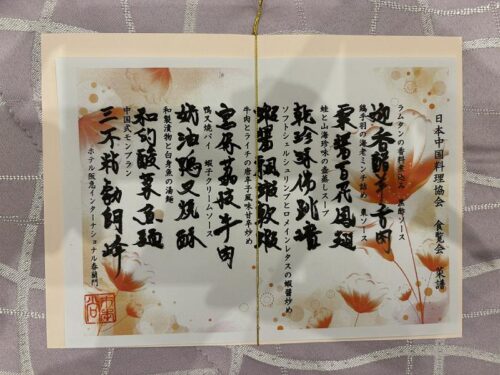 日本中国料理協会 食覧会 菜譜
ラムタンの香料煮込み 黒酢ソース
鶏手羽の海老ミンチ詰め 栗ソース
栗醤百花鳳翅
鮭と山海珍味の壷蒸しスープ
乾珍味佛跳墻
ソフトシェルシュリンプとロメインレタスの蝦醤炒め
牛肉とライチの唐辛子風味甘辛炒め
宮保茘枝牛肉
鴨叉焼パイ 蝦子クリームソース
奶油鴨叉焼酥
和製漬物と白身魚の湯麺
和的酸菜魚麺
中国式モンブラン
三不粘勃朗峰
ホテル阪急インターナショナル春蘭門